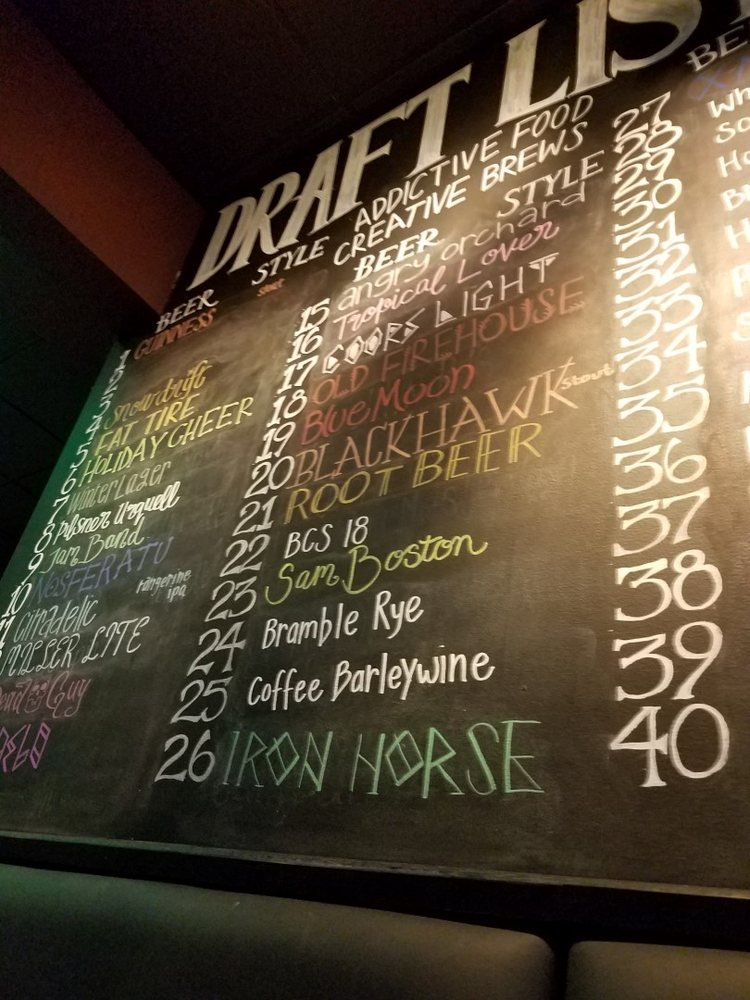 DRAFT LIST
ADDICTIVE FOOD
CREATIVE BREWS
BEER STYLE
1 GUINNESS stout
2
3 Snowdrift
4 FAT TIRE
5 HOLIDAY CHEER
6 Winter Lager
7 Pilsner Urquell
8 Jam Band
9 NOSFERATU
10 Citradelic tangerine ipa
11 MILLER LITE
Dead Guy
BEER STYLE
15 angry orchard
16 Tropical Lover
17 COORS LIGHT
18 OLD FIREHOUSE
19 Blue Moon
20 BLACKHAWK stout
21 ROOT BEER
22 BCS 18
23 Sam Boston
24 Bramble Rye
25 Coffee Barleywine
26 IRON HORSE
BE
27
28 Wh
29 So
30 Ho
31
32
33
34
35
36
37
38
39
40